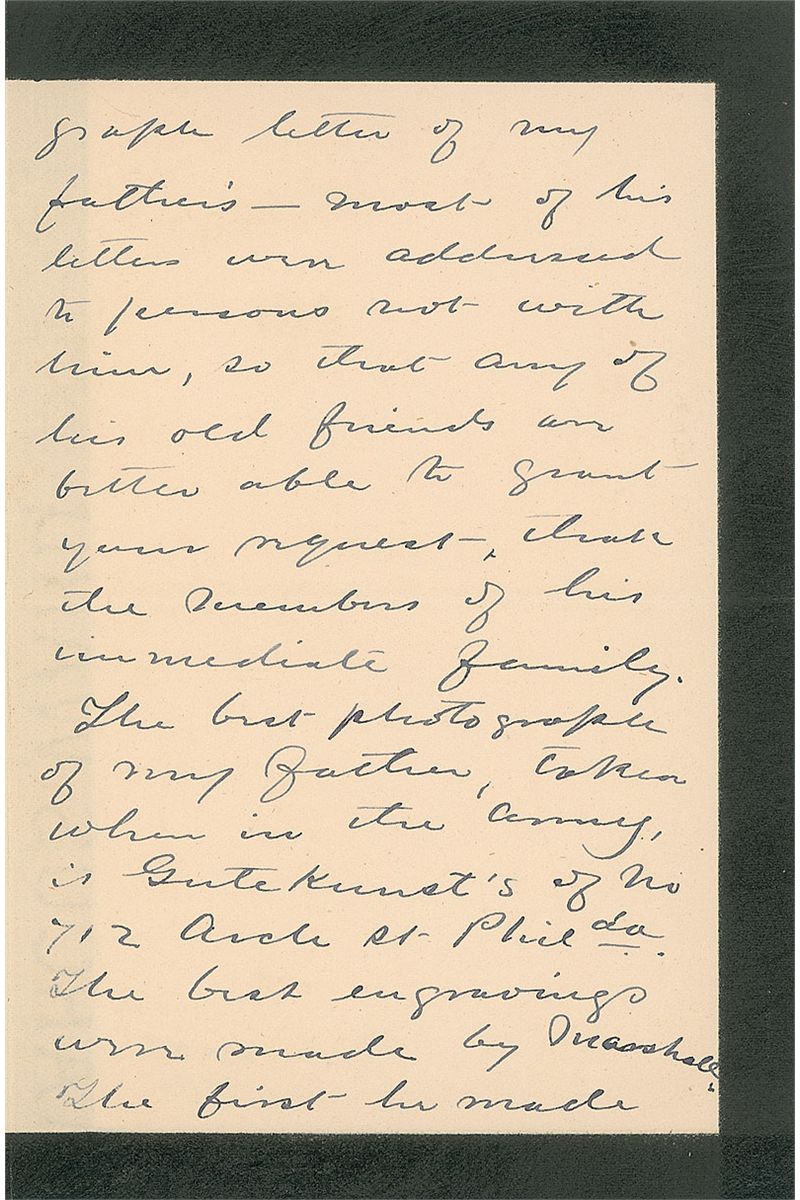 graph letter of my
father's — most of his
letters were addressed
to persons not with
him, so that any of
his old friends are
better able to grant
your request, than
the members of his
immediate family.
The best photograph
of my father, taken
when in the army,
is GuteKunst's of No
712 Arch st Philda.
The best engravings
were made by Marshall.
The first he made